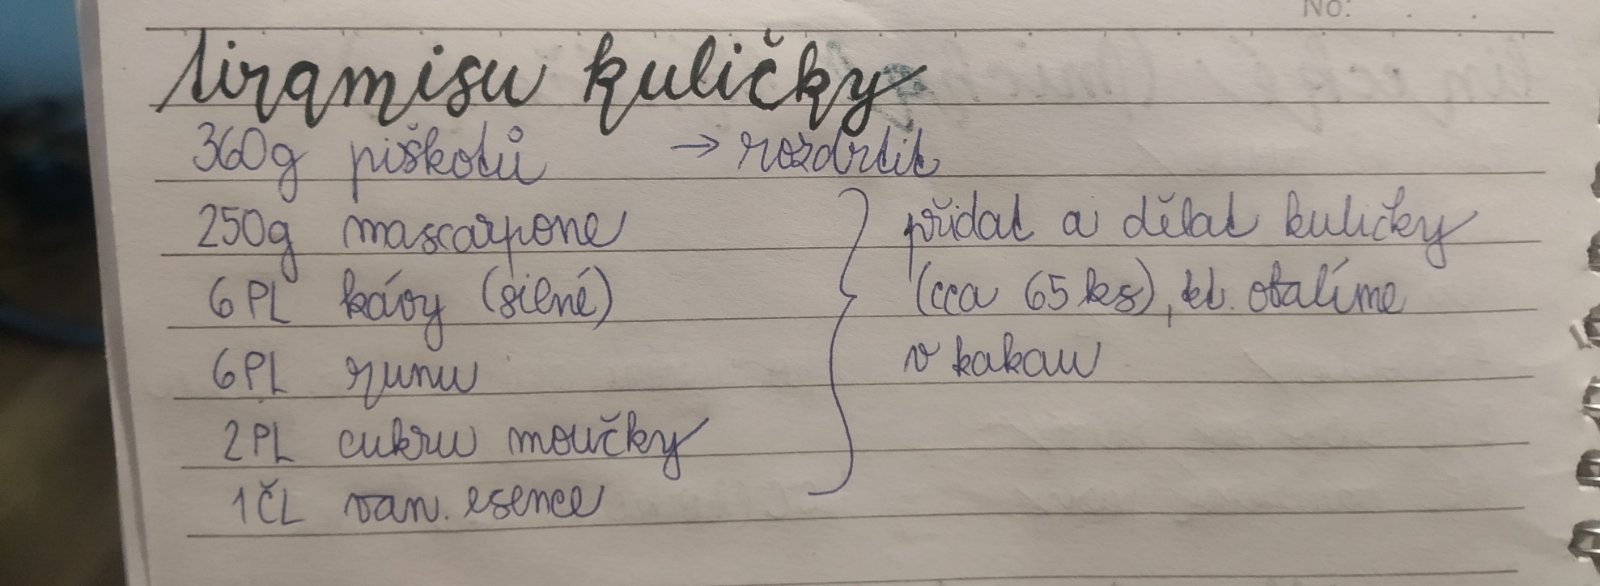 No:
Tiramisu kuličky
360g piškotů → rozdrtit
250g mascarpone
6PL kávy (silné)
6PL rumu
2PL cukru moučky
1ČL van. esence
přidat a dělat kuličky
(cca 65 ks), kt. obalíme
v kakau